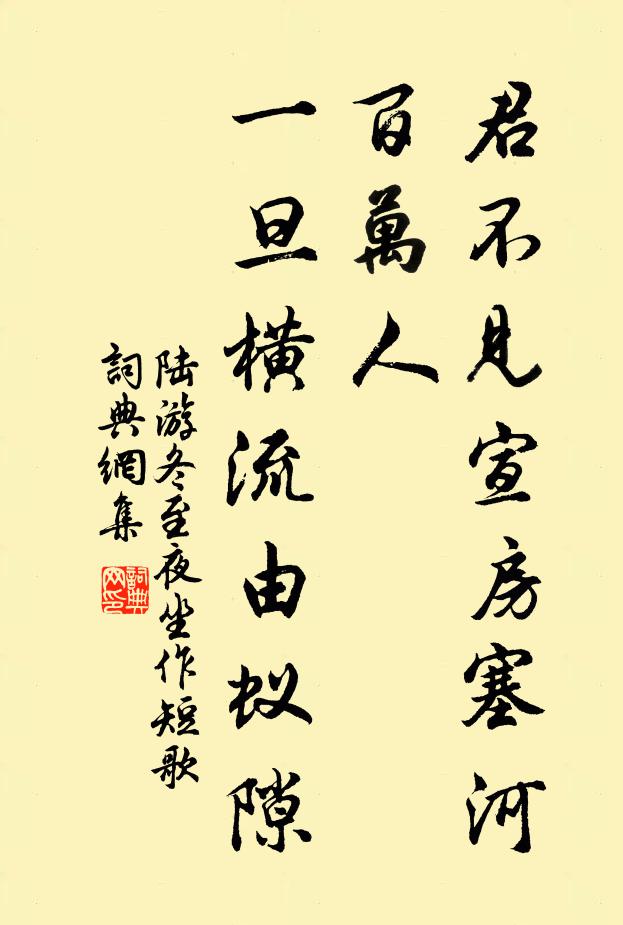 君不見宣房塞河
百萬人
一旦橫流由蚁隙
陆游冬至夜坐作短歌
詞典網集
詞典網印